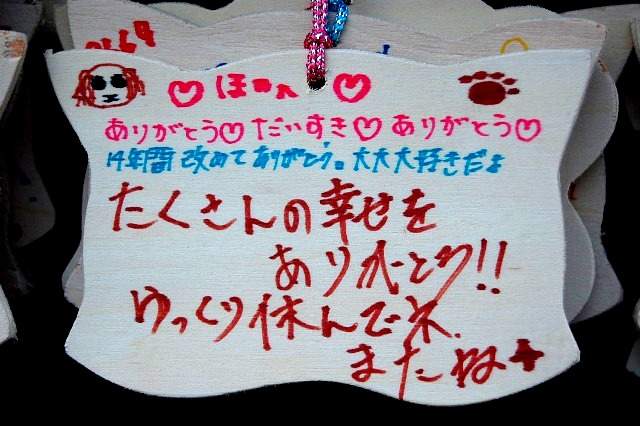 ♡ほのん♡
ありがとう♡だいすき♡ありがとう♡
14年間改めてありがとう。大大大好きだよ
たくさんの幸せを
ありがとう!!
ゆっくり休んでネ.
またね